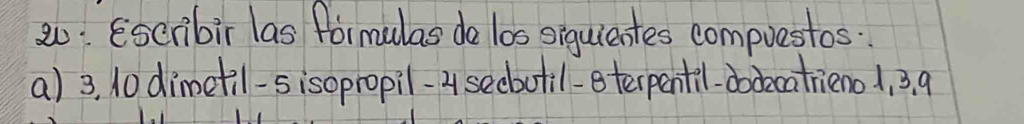 20: Escribir las fórmulas de los siguientes compuestos:
a) 3,10 dimetil-5 isopropil-4 secbutil-8 terpentil-dodecatrieno 1,3,9